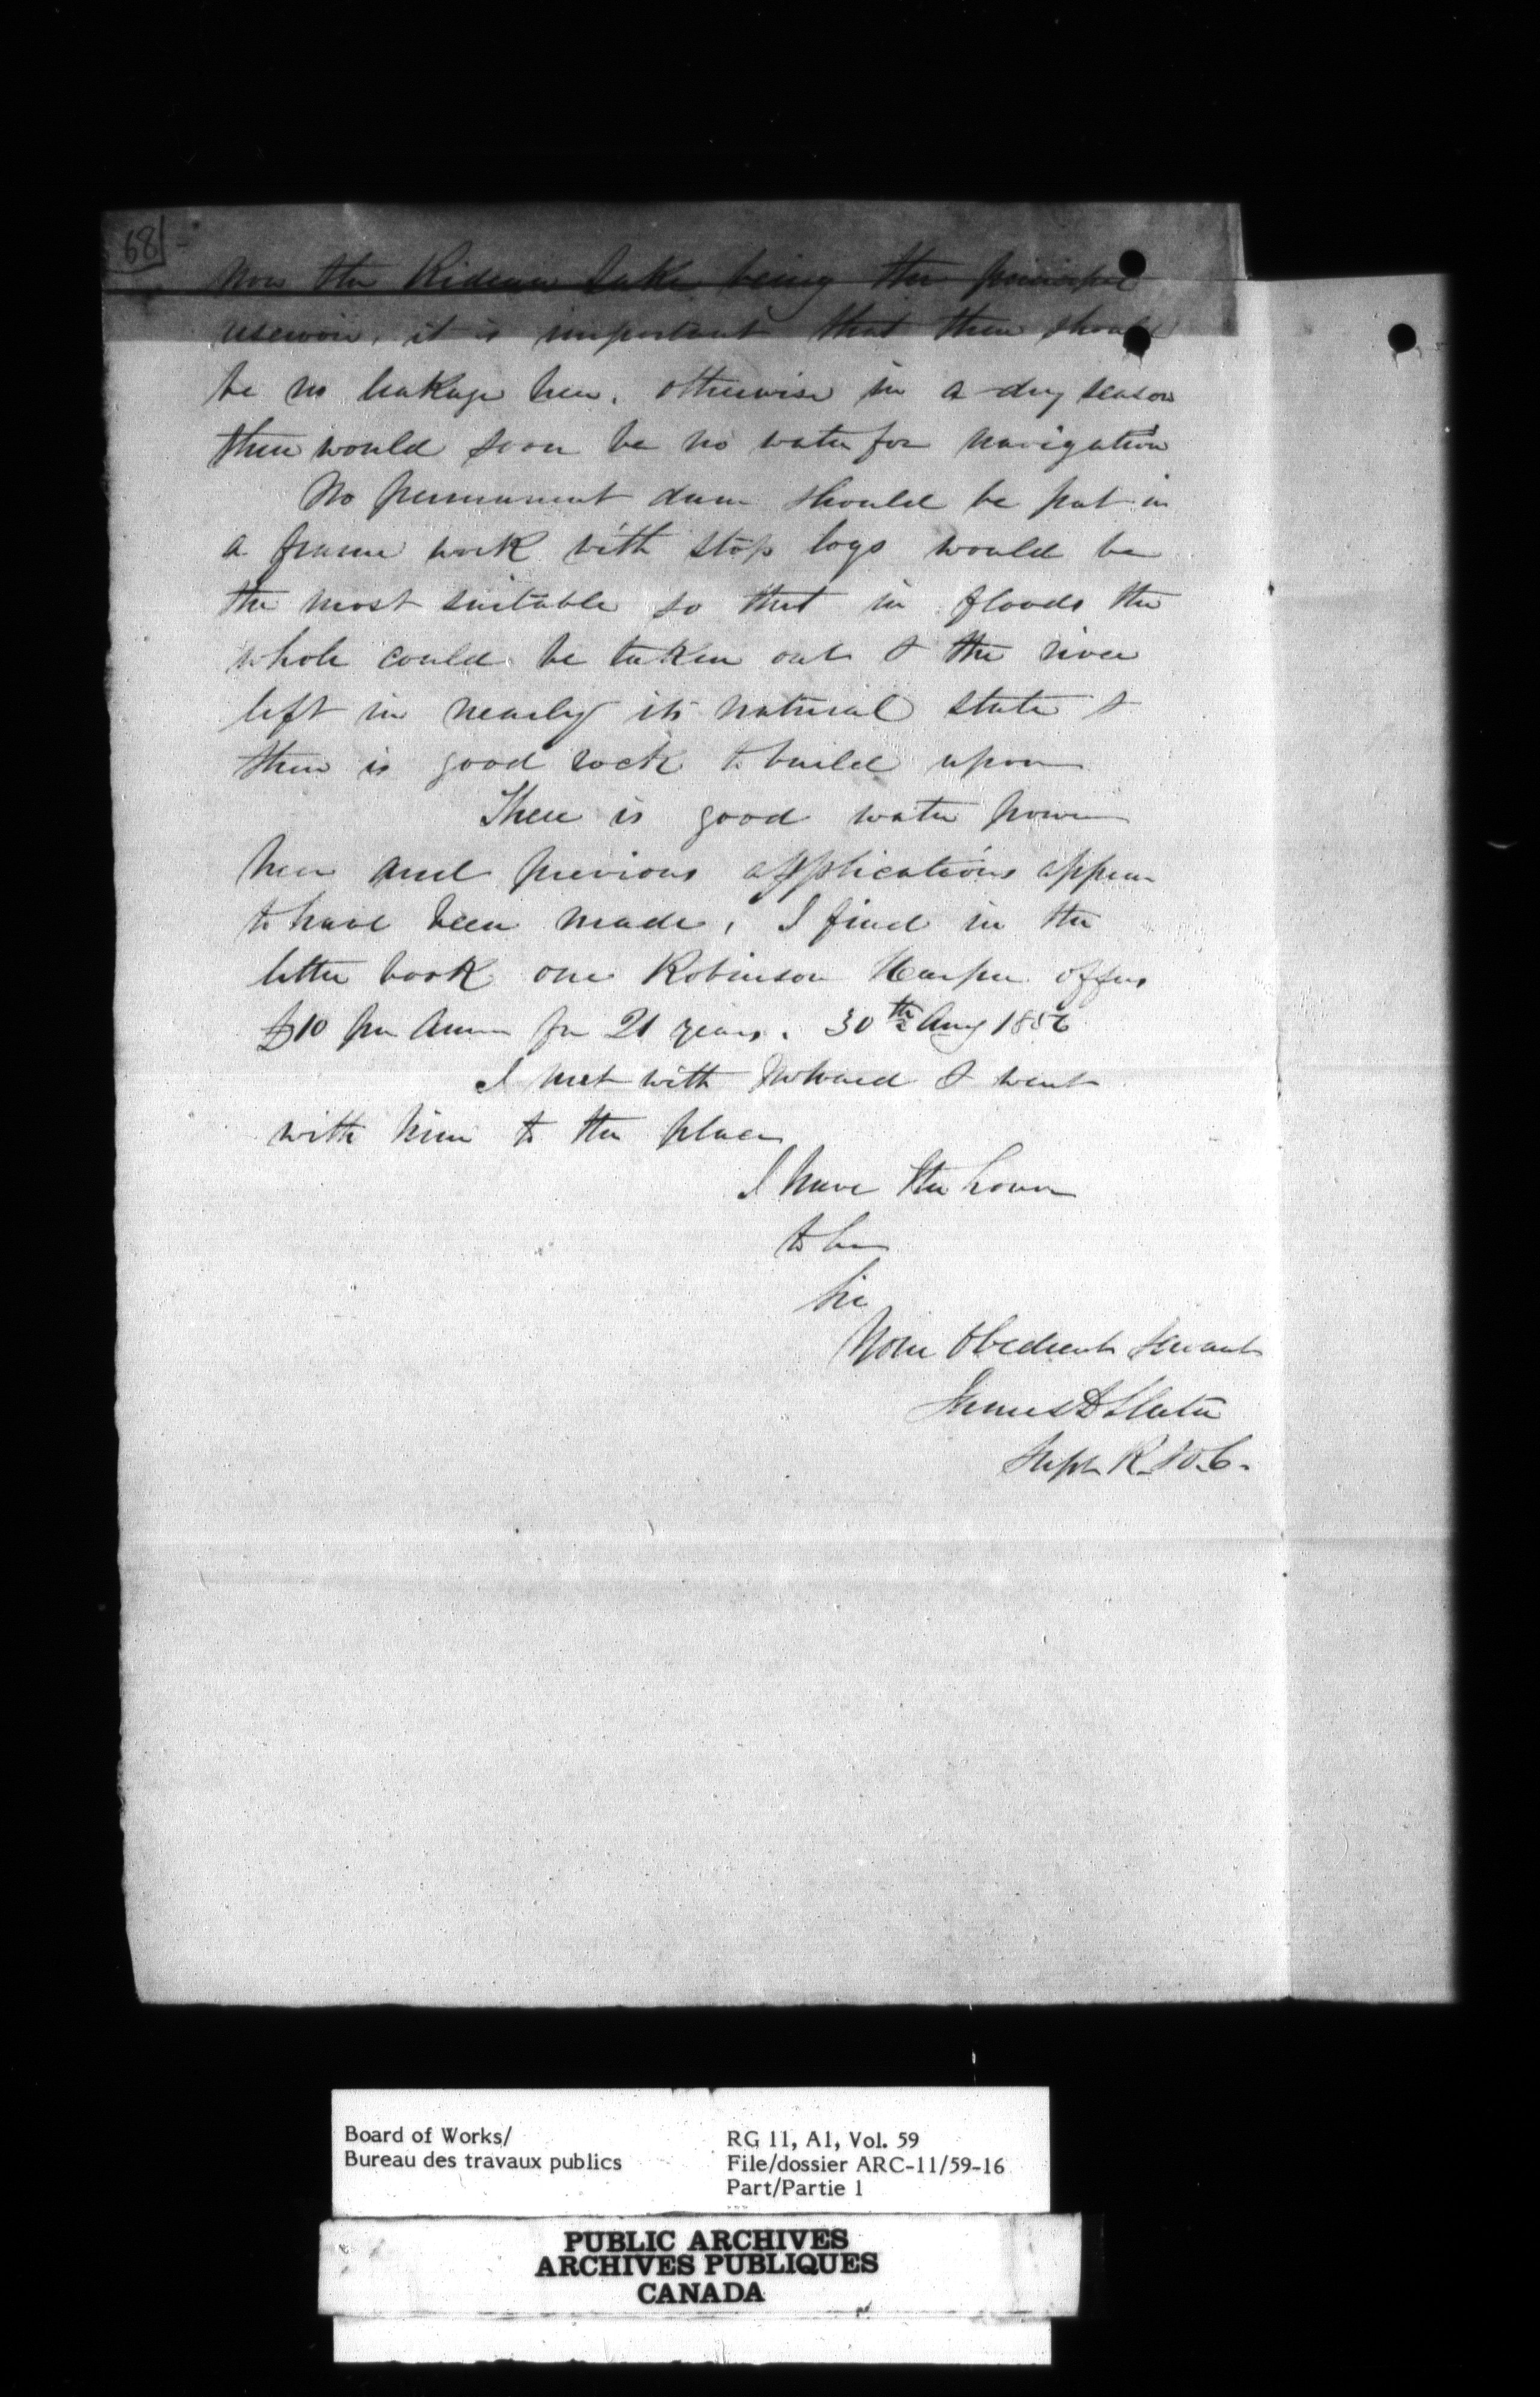 68
Now the Rideau Lake being the principal
reservoir, it is important that there should
be no leakage here, otherwise in a dry season
there would soon be no water for navigation
No permanent dam should be put in
a frame work with stop logs would be
the most suitable so that in floods the
whole could be taken out & the river
left in nearly its natural state &
there is good rock to build upon
There is good water power
here and previous applications appear
to have been made, I find in the
letter book one Robinson Harper offers
£10 per Annum for 21 years. 30th Aug 1856
I met with & went
with him to the place
I have the honor
to be
Sir
Your Obedient Servant
James D Slater
Supt R. W. C.
Board of Works/
Bureau des travaux publics
RG 11, A1, Vol. 59
File/dossier ARC-11/59-16
Part/Partie 1
PUBLIC ARCHIVES
ARCHIVES PUBLIQUES
CANADA